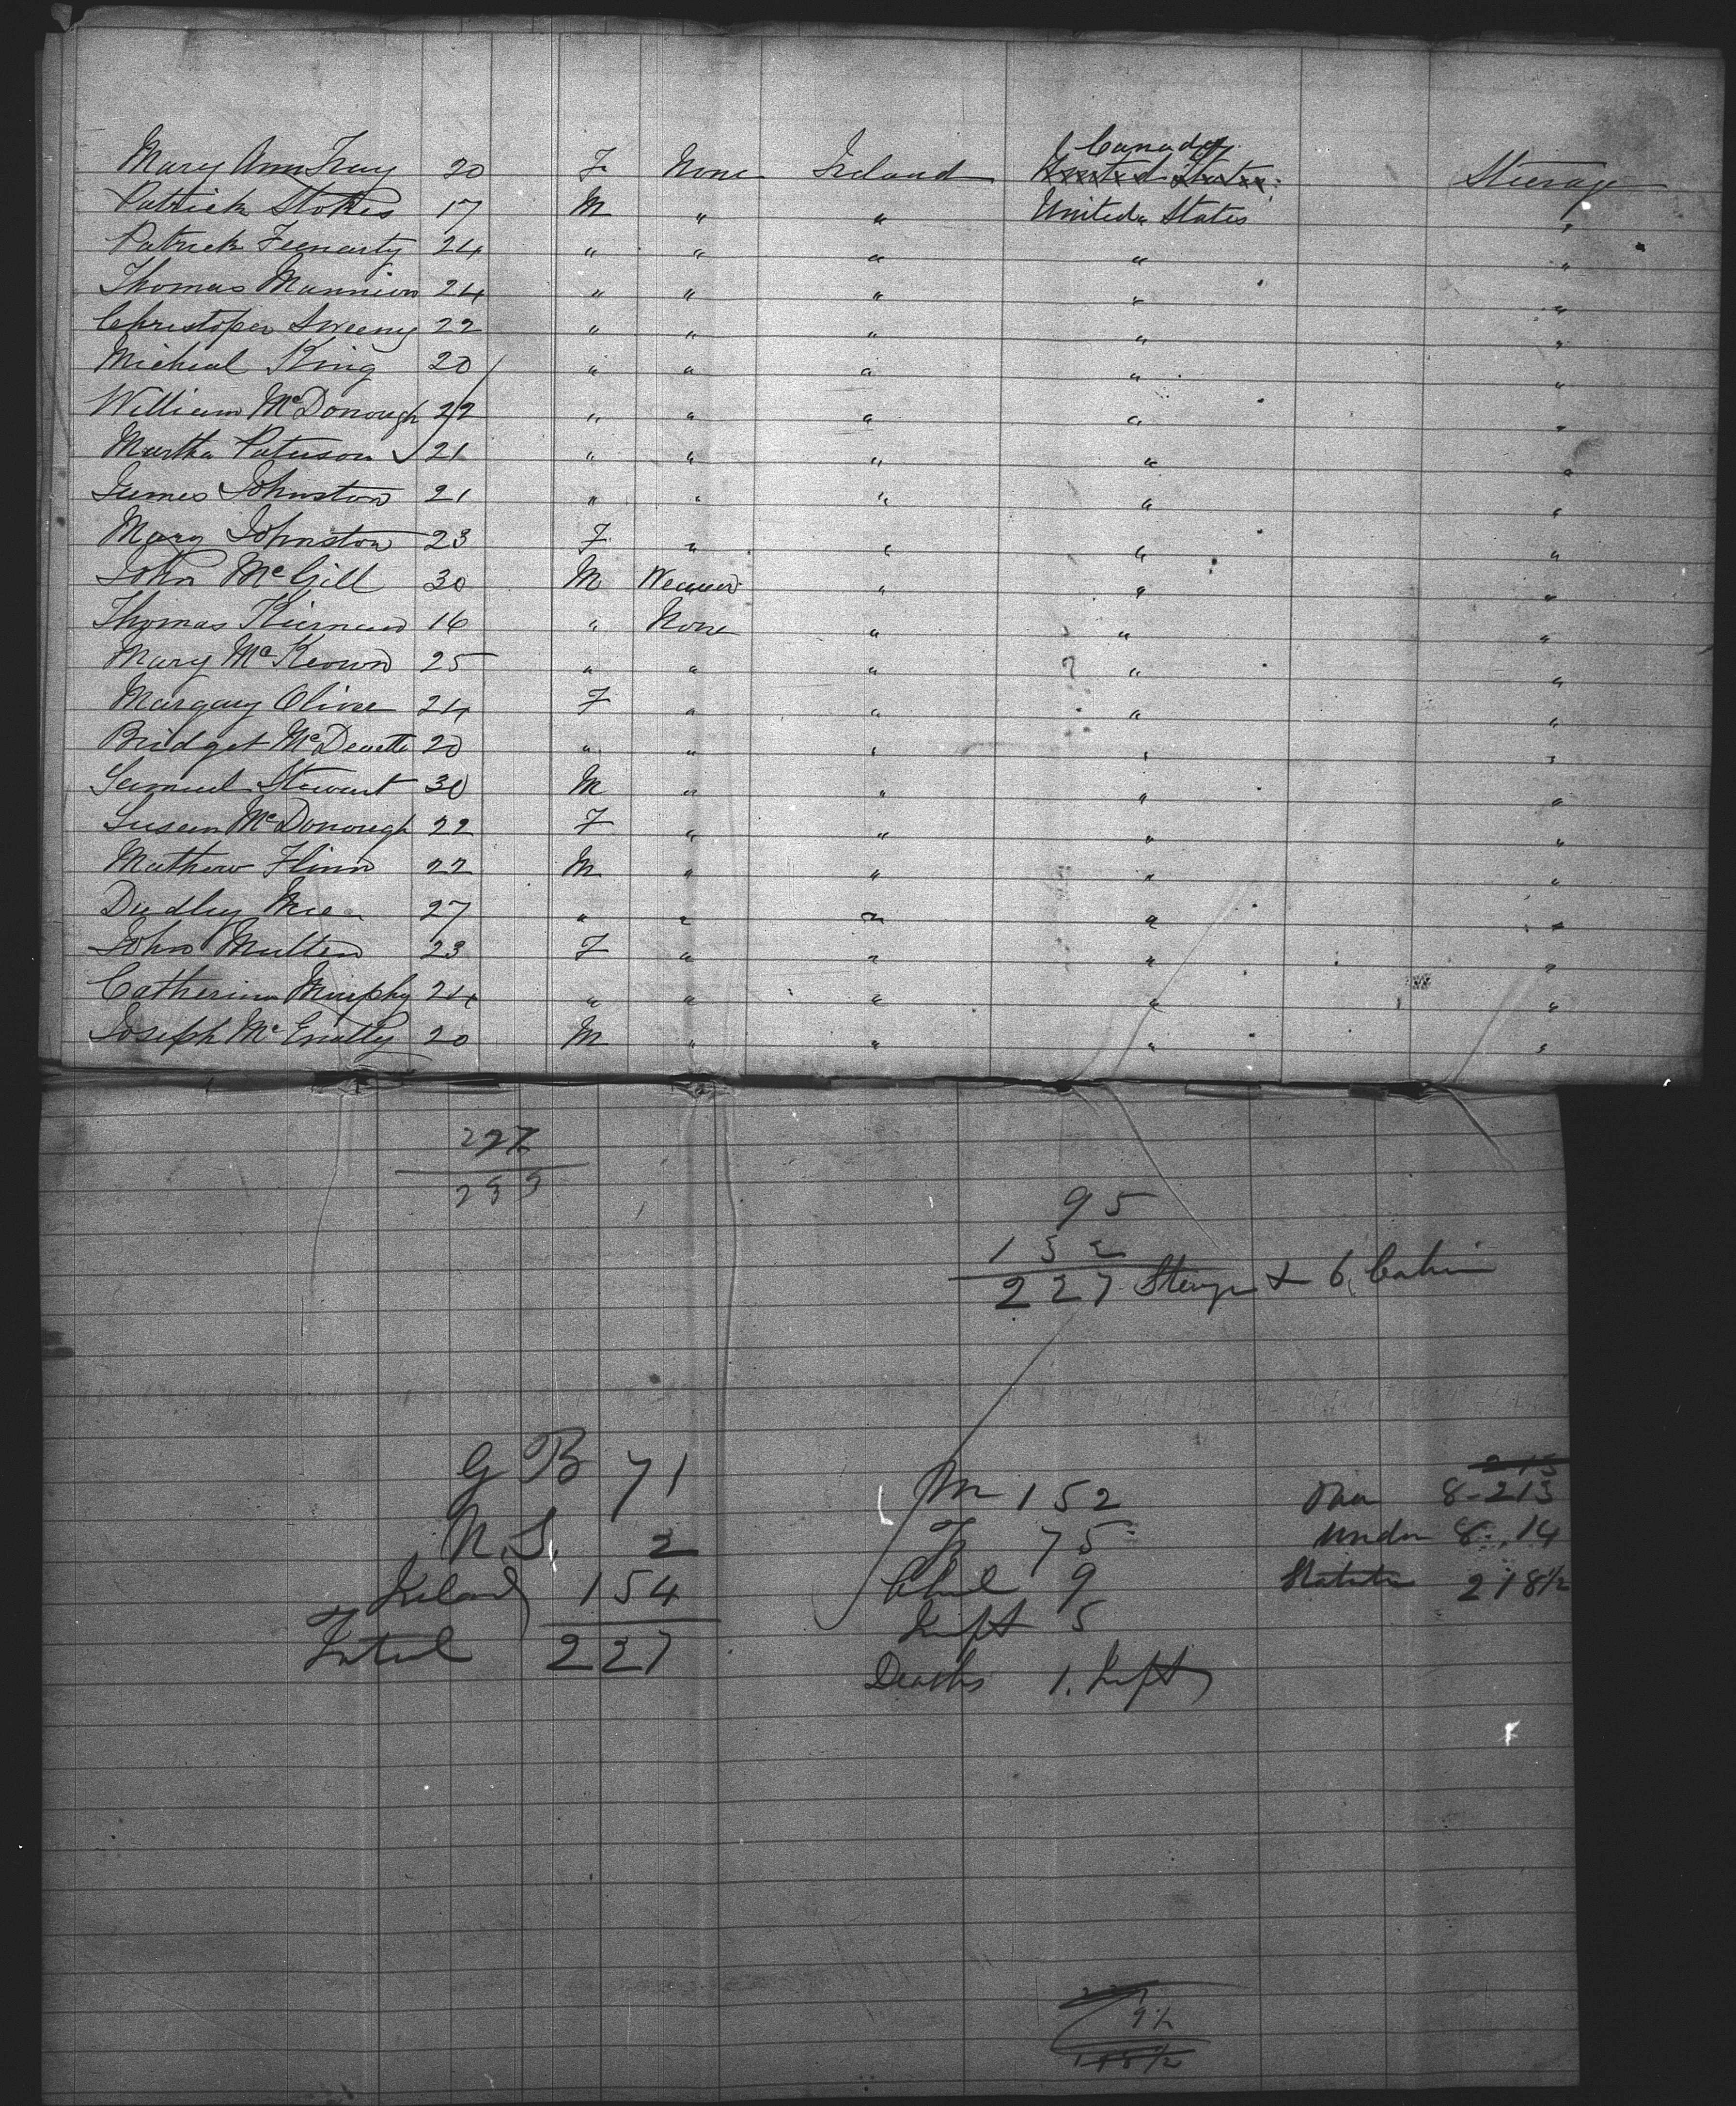 Canada
Mary Ann Fray 20 F None Ireland United States Steerage
Patrick Stokes 17 M " " United States "
Patrick Feenarty 24 " " " " "
Thomas Mannion 24 " " " " "
Christoper Sweeny 22 " " " " "
Micheal King 20 " " " " "
William McDonough 22 " " " " "
Martha Paterson 21 " " " " "
James Johnston 21 " " " " "
Mary Johnston 23 F " " " "
John McGill 30 M Weaver " " "
Thomas Kiernan 16 " None " " "
Mary McKeown 25 " " " " "
Margary Oliver 24 F " " " "
Bridget 20 " " " " "
Samuel Stewart 30 M " " " "
Susan McDonough 22 F " " " "
Mathew Flinn 22 M " " " "
Dudley 27 " " " " "
John Mullen 23 F " " " "
Catherine Murphy 24 " " " " "
Joseph 20 M " " " "
227
233
95
132
227 Steerage & 6 Cabin
G B 71
N. S. 2
Ireland 154
Total 227
M 152
F 75
Chil 9
Inft 5
Deaths 1. Inft
213
Over 8-213
Under 8. 14
Statute 218½